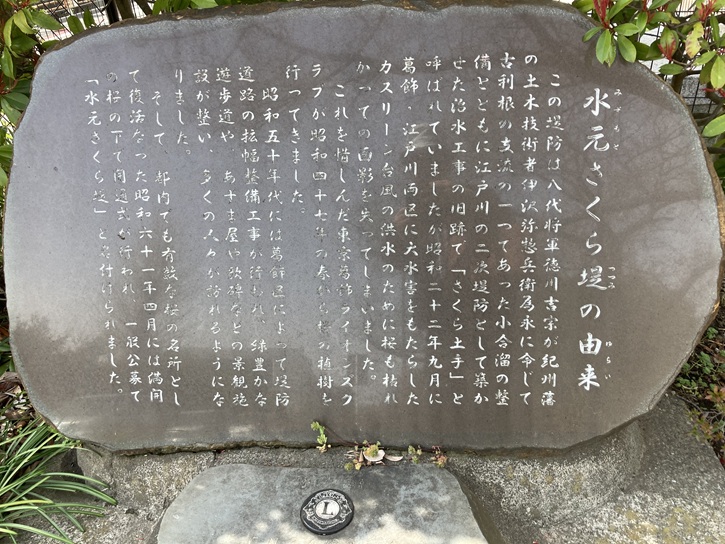 水元さくら堤の由来
みずもと
つつみ
ゆらい
この堤防は八代将軍徳川吉宗が紀州藩
の土木技術者伊沢弥惣兵衛為永に命じて
古利根の支流の一つであった小合溜の整
備とともに江戸川の二次堤防として築か
せた治水工事の旧跡で「さくら土手」と
呼ばれていましたが昭和二十二年九月に
葛飾、江戸川両区に大水害をもたらした
カスリーン台風の洪水のために桜も枯れ
かつての面影を失ってしまいました。
これを惜しんだ東京葛飾ライオンズク
ラブが昭和四十七年の春から桜の植樹を
行ってきました。
昭和五十年代には葛飾区によって堤防
道路の拡幅整備工事が行われ、緑豊かな
遊歩道や、あずま屋や歌碑などの景観施
設が整い、多くの人々が訪れるようにな
りました。
そして、都内でも有数な桜の名所とし
て復活なった昭和六十一年四月には満開
の桜の下で開通式が行われ、一般公募で
「水元さくら堤」と名付けられました。
L